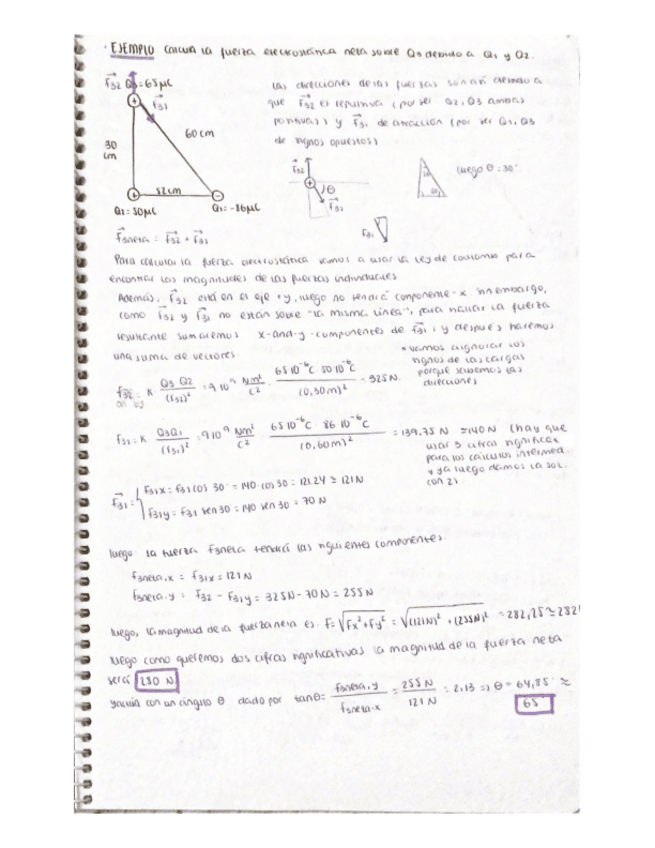 · EJEMPLO calcula la fuerza electrostática neta sobre Q3 debido a Q1 y Q2.
F32 Q3=65μC
F31
30 cm
60 cm
52cm
Q2=50μC
Q1=-86μC
Las direcciones de las fuerzas son así debido a
que F32 es repulsiva (por ser Q2, Q3 ambas
positivas) y F31 de atracción (por ser Q1, Q3
de signos opuestos)
F32
θ
F31
luego θ=30°
F31
F3neta = F32 + F31
Para calcular la fuerza electrostática vamos a usar la ley de coulomb para
encontrar las magnitudes de las fuerzas individuales
Además, F32 está en el eje +y, luego no tendrá componente-x sin embargo,
como F32 y F31 no están sobre "la misma línea", para hallar la fuerza
resultante sumaremos x-and-y-componentes de F31, y después haremos
una suma de vectores.
* vamos a ignorar los
signos de las cargas
porque sabemos las
direcciones
F32 = K Q3 Q2 / (r32)² = 9·10⁹ Nm²/C² · 65·10⁻⁶C · 50·10⁻⁶C / (0,30m)² = 325N.
F31 = K Q3Q1 / (r31)² = 9·10⁹ Nm²/C² · 65·10⁻⁶C · 86·10⁻⁶C / (0,60m)² = 139.75 N ≅140N
(hay que
usar 3 cifras significat.
para los cálculos intermed.
y ya luego damos la sol.
con 2).
F31 = { F31x = F31 cos 30° = 140·cos 30 = 121.24 ≅ 121N
F31y = F31 sen 30 = 140 sen 30 = 70 N
luego: la fuerza F3neta tendrá las siguientes componentes:
F3neta,x = F31x = 121 N
F3neta,y = F32 - F31y = 325N - 70N = 255N
luego, la magnitud de la fuerza neta es: F=√Fx²+Fy² = √(121N)² + (255N)² = 282,25 ≅ 282
luego como queremos dos cifras significativas la magnitud de la fuerza neta
será 280 N
y actúa con un ángulo θ dado por tanθ = F3neta,y / F3neta,x = 255 N / 121 N = 2.13 => θ = 64,85° ≅
65°